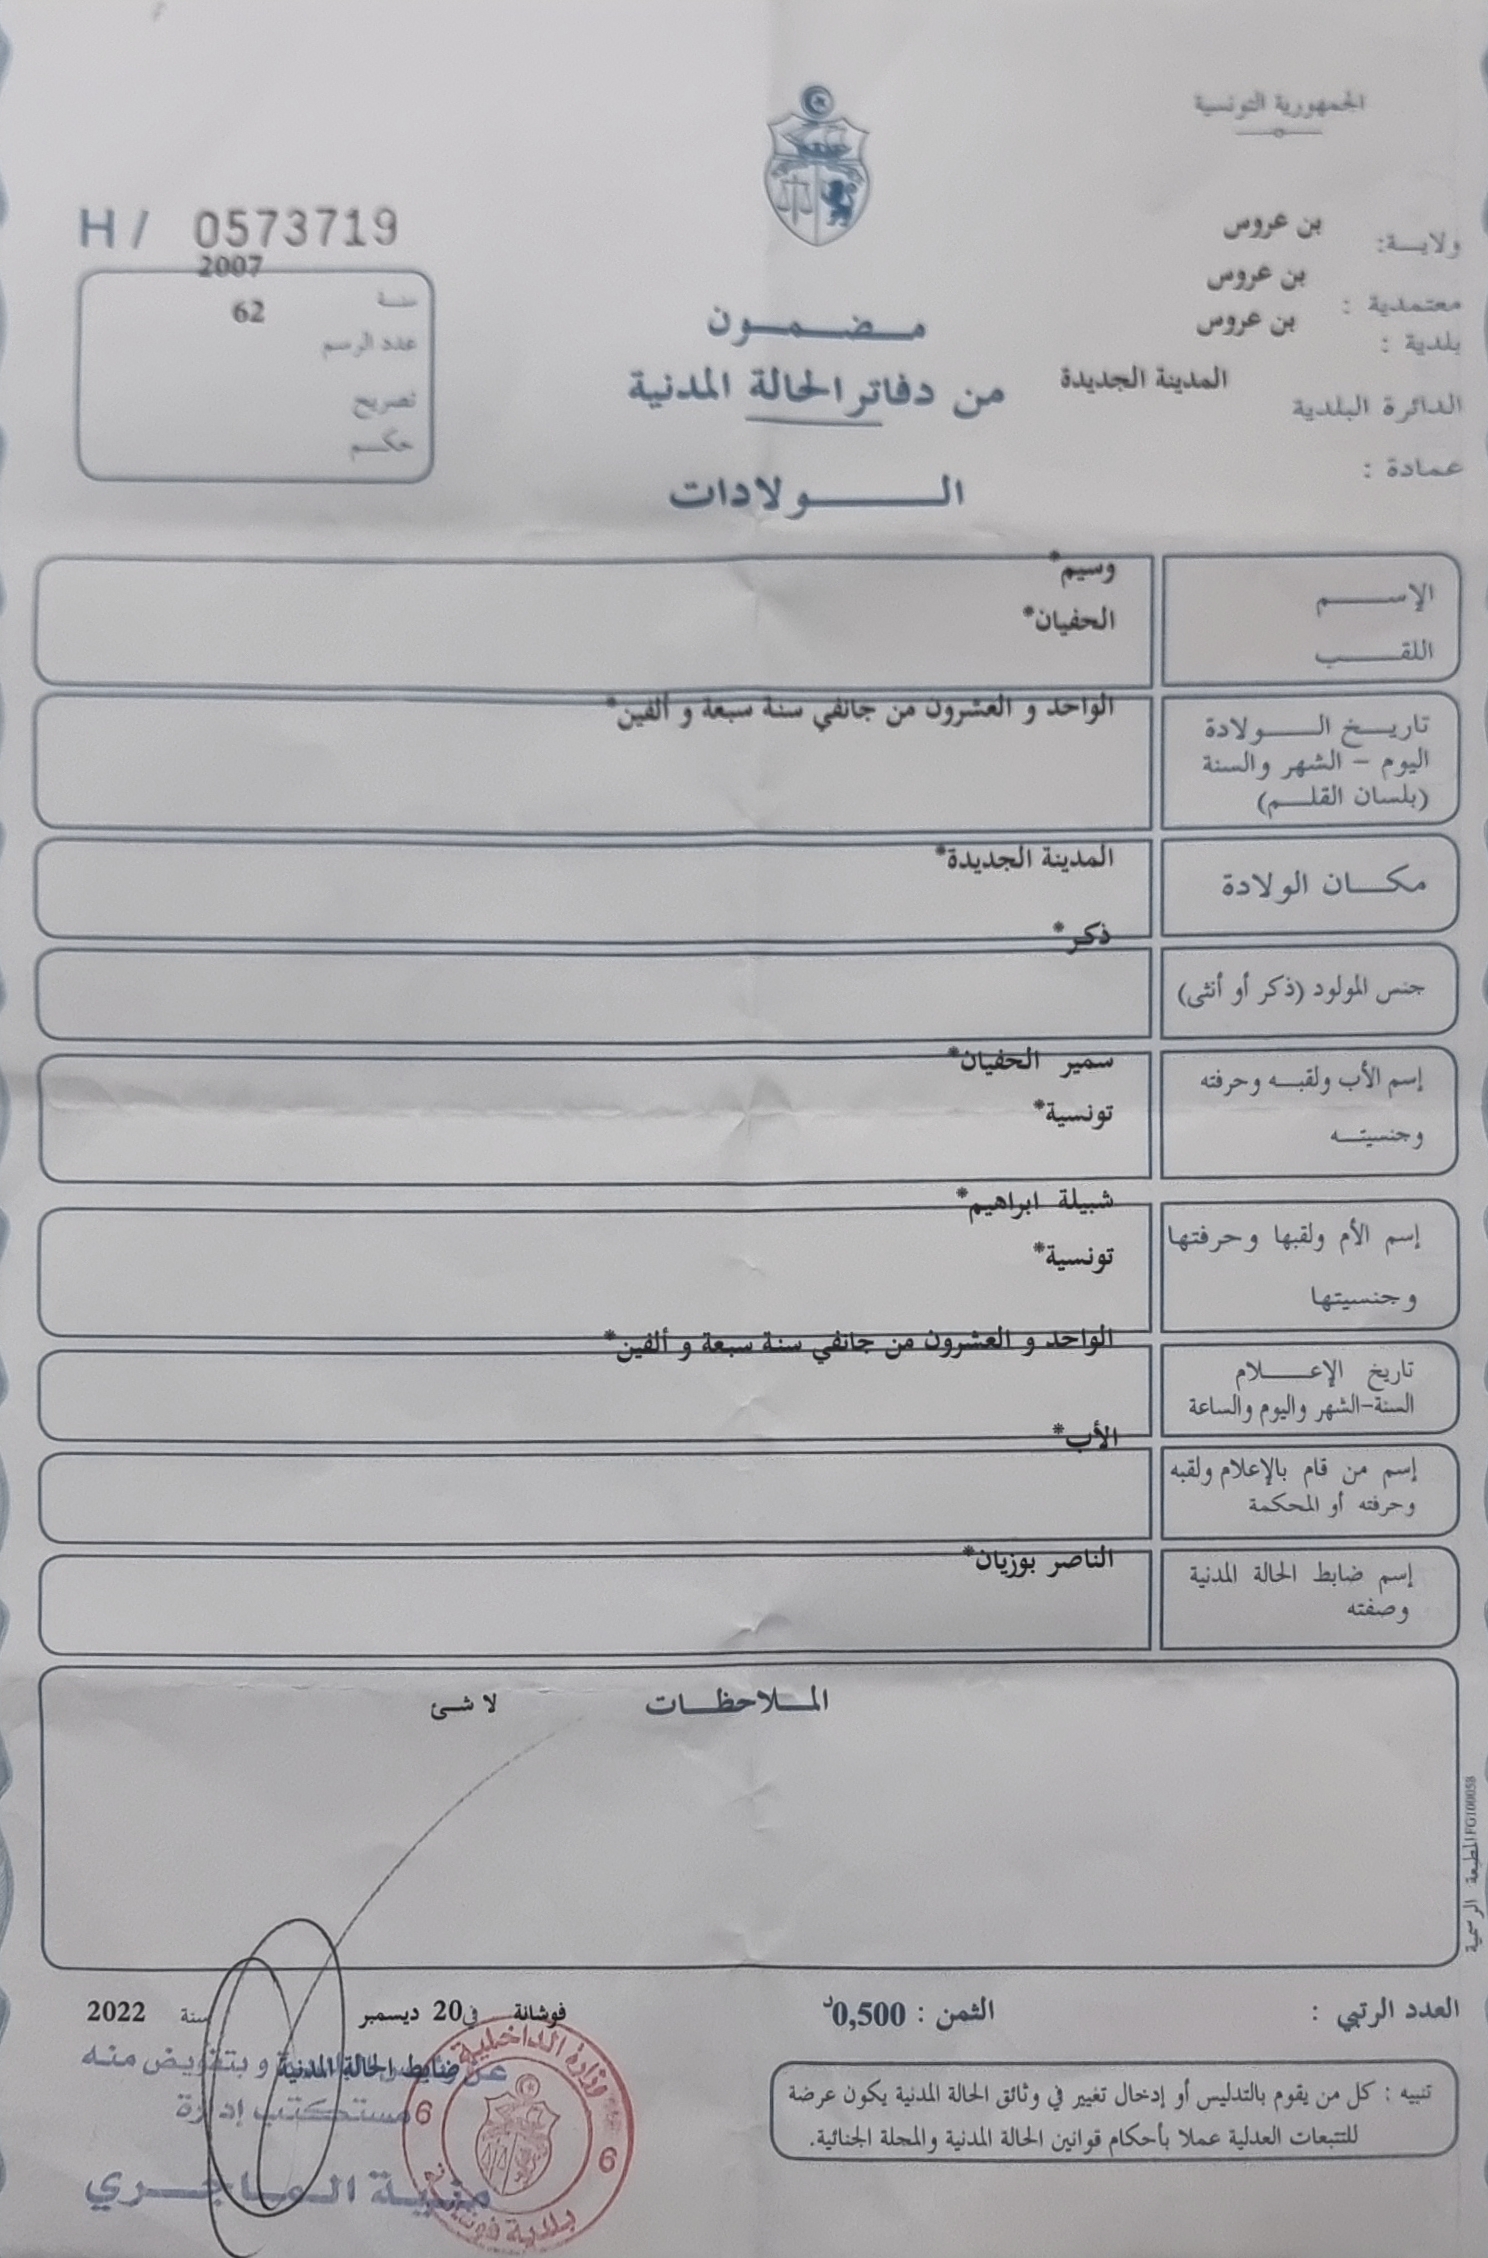 الجمهورية التونسية
ولايـــة: بن عروس
معتمدية : بن عروس
بلدية : بن عروس
الدائرة البلدية المدينة الجديدة
عمادة :
H / 0573719
سنـة 2007
عدد الرسم 62
تصريح
حكـــم
مـــضـــمـــون
من دفاتر الحالة المدنية
الـــــــولادات
الإســـــم وسيم*
اللقـــــب الحفيان*
تاريـــخ الـــــولادة
اليوم - الشهر والسنة
(بلسان القلـــم)
الواحد و العشرون من جانفي سنة سبعة و ألفين*
مكـــان الولادة المدينة الجديدة*
جنس المولود (ذكر أو أنثى) ذكر*
إسم الأب ولقبـــه وحرفته سمير الحفيان*
وجنسيتـــه تونسية*
إسم الأم ولقبها وحرفتها شبيلة ابراهيم*
وجنسيتها تونسية*
تاريخ الإعـــــلام
السنة-الشهر واليوم والساعة
الواحد و العشرون من جانفي سنة سبعة و ألفين*
إسم من قام بالإعلام ولقبه
وحرفته أو المحكمة
الأب*
إسم ضابط الحالة المدنية
وصفته
الناصر بوزيان*
المـــلاحظـــات لا شئ
المطبعة الرسمية FG100058
العدد الرتبي :
الثمن : 0,500د
فوشانة في 20 ديسمبر سنة 2022
ضابط الحالة المدنية
و بتفويض منه
مستكتب إدارة
منية الماجري
وزارة الداخلية
6 6
بلدية فوشانة
تنبيه : كل من يقوم بالتدليس أو إدخال تغيير في وثائق الحالة المدنية يكون عرضة
للتتبعات العدلية عملا بأحكام قوانين الحالة المدنية والمجلة الجنائية.